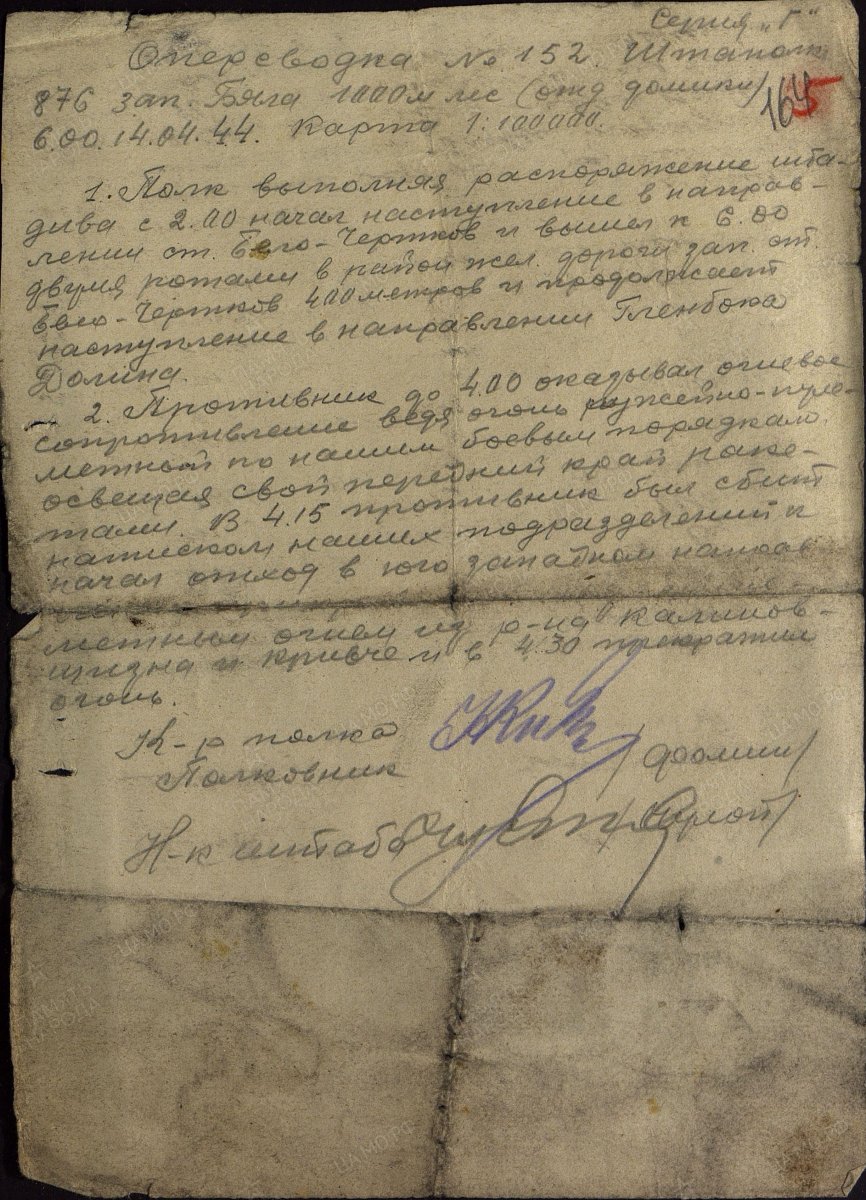 Серия "Г"
Оперсводка № 152. Штаполк
876 зап. Бяла 1000 м лес (отд домики)
165
6.00. 14.04.44. Карта 1:100000.
1. Полк выполняя распоряжение шта-
дива с 2.00 начал наступление в направ-
лении ст. Бяло-Чертков и вышел к 6.00
двумя ротами в район жел. дороги зап. ст.
Бяло-Чертков 400 метров и продолжает
наступление в направлении Гленбока
Долина.
2. Противник до 4.00 оказывал огневое
сопротивление ведя огонь ружейно-пуле-
метной по нашим боевым порядкам
освещая свой передний край раке-
тами. В 4.15 противник был сбит
натиском наших подразделений и
начал отход в юго западном направ
метным огнем из р-на Калинов-
щизна и Кривче и в 4.30 прекратил
огонь.
К-р полка
Полковник /Фомин/
Н-к штаба